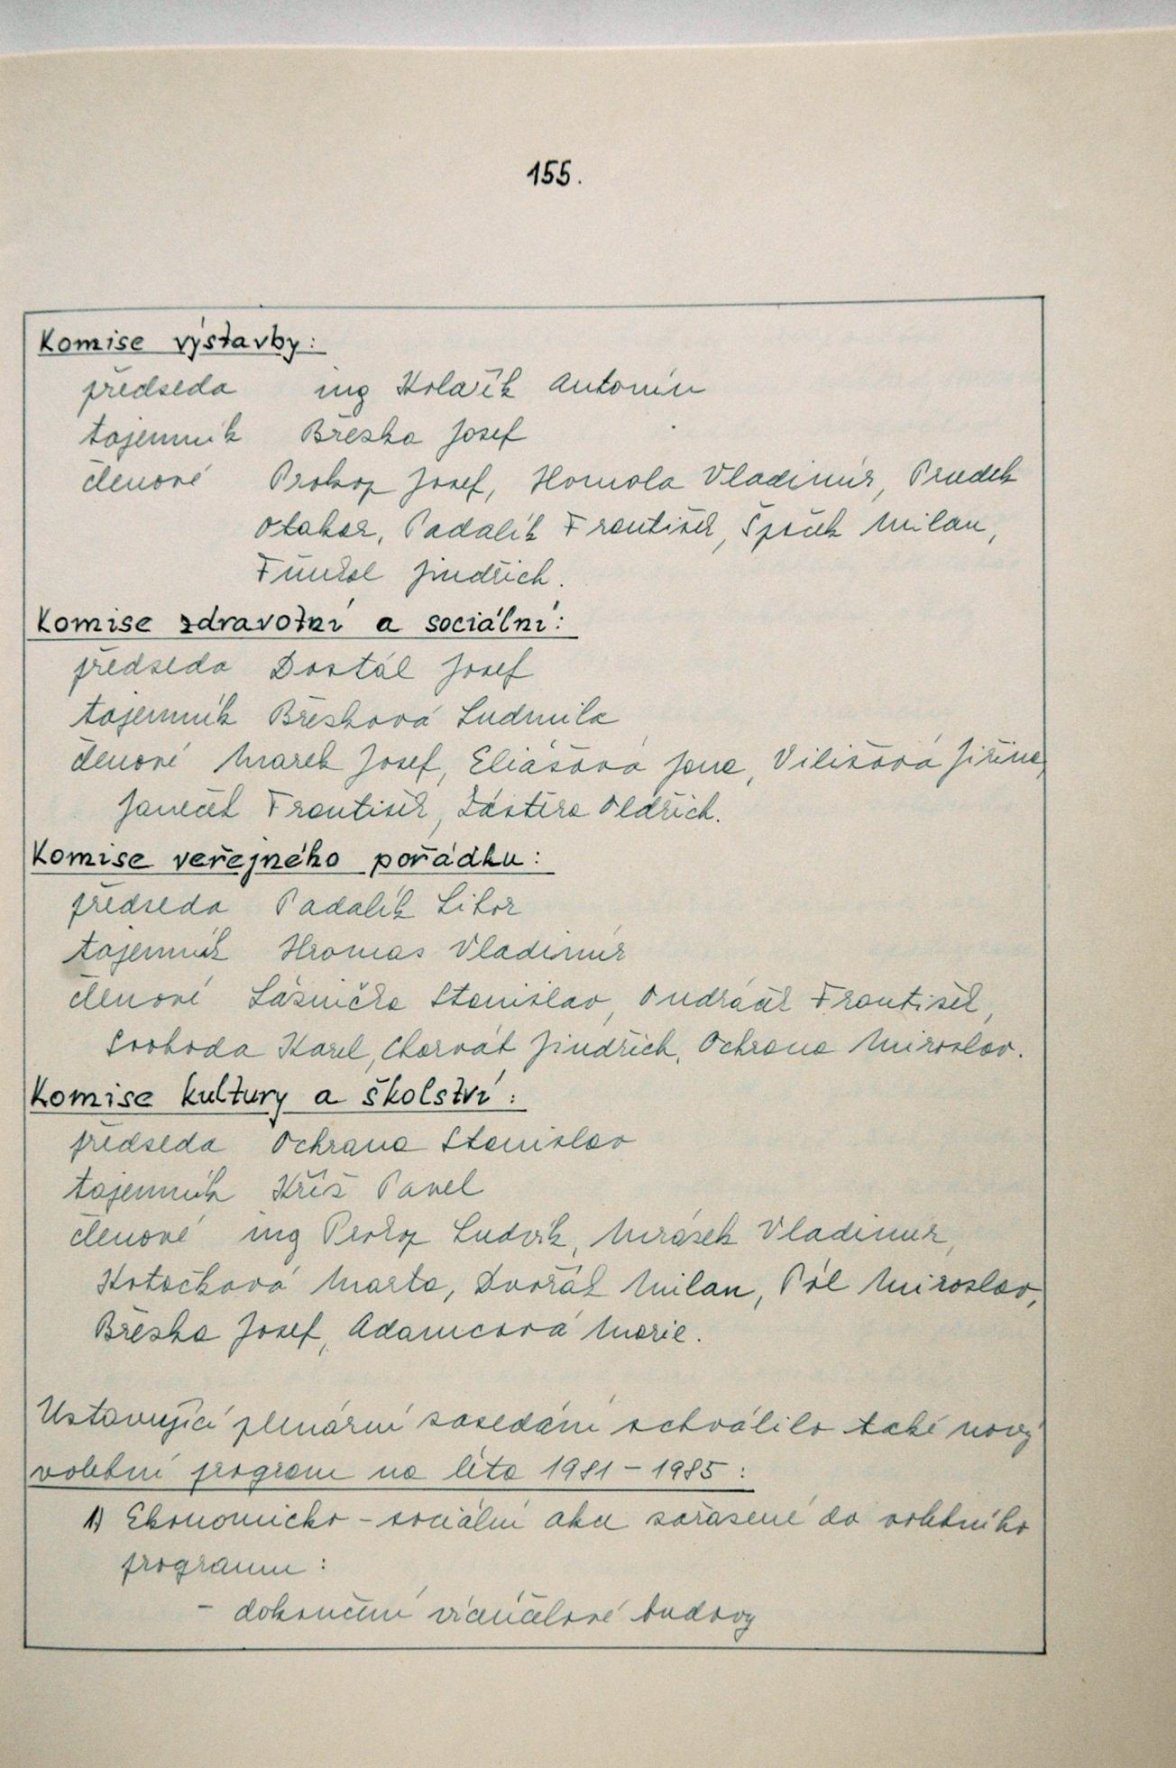 155.
Komise výstavby:
předseda ing Kolařík Antonín
tajemník Břeska Josef
členové Prokop Josef, Homola Vladimír, Prudek
Otakar, Padalík František, Špaček Milan,
Jindřich.
Komise zdravotní a sociální:
předseda Dostál Josef
tajemník Břesková Ludmila
členové Marek Josef, Eliášová Jana, Vilišová Jiřina,
Janeček František, Zástěra Oldřich.
Komise veřejného pořádku:
předseda Padalík Libor
tajemník Hromas Vladimír
členové Lásnička Stanislav, Ondráček František,
Svoboda Karel, Charvát Jindřich, Ochrana Miroslav.
Komise kultury a školství:
předseda Ochrana Stanislav
tajemník Kříž Pavel
členové ing Prokop Ludvík, Mrásek Vladimír,
Kotačková Marta, Dvořák Milan, Pól Miroslav,
Břeska Josef, Adamcová Marie.
Ustavující plenární zasedání schválilo také nový
volební program na léta 1981-1985:
1) Ekonomicko-sociální akce zařazené do volebního
programu:
- dokončení víceúčelové budovy